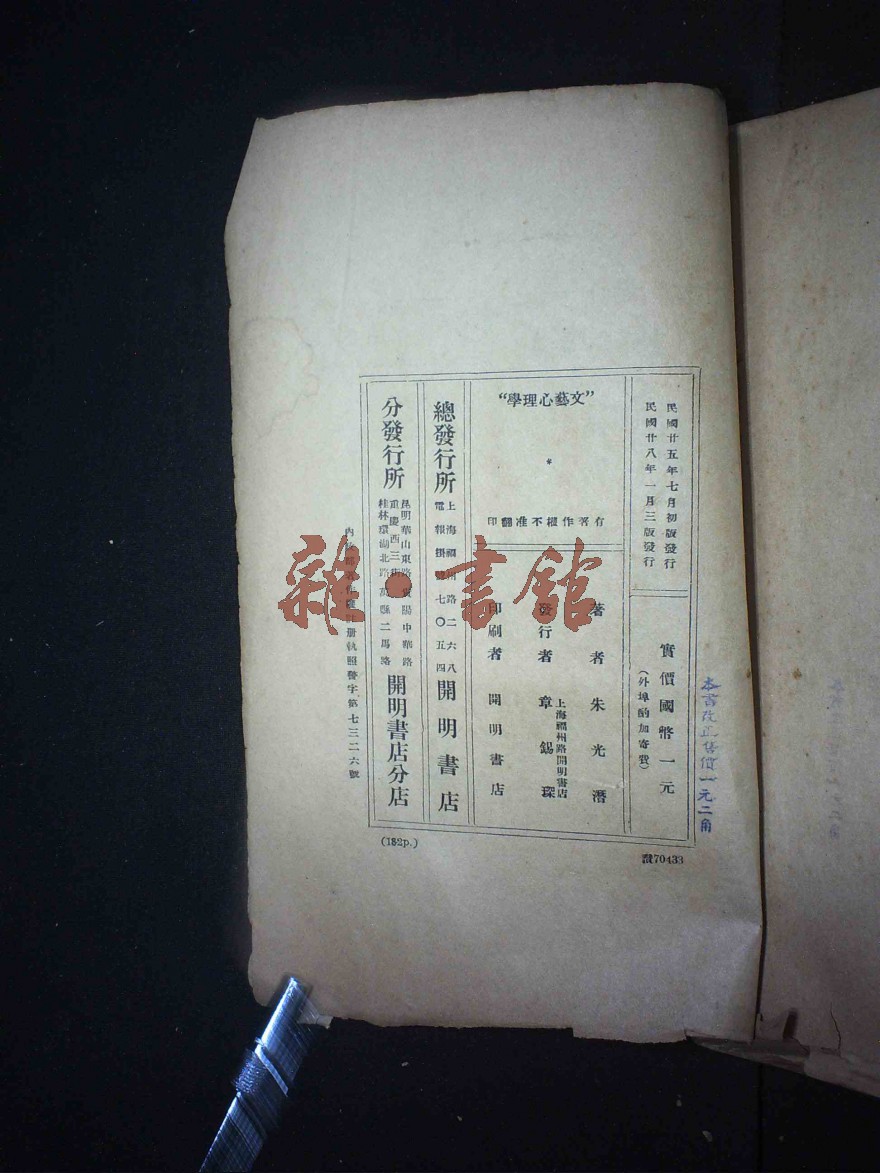 民國廿五年七月初版發行
民國廿八年一月三版發行
實價國幣一元
(外埠酌加寄費)
本書改正售價一元二角
“文藝心理學”
*
有著作權不准翻印
著者 朱光潛
發行者 章錫琛
上海福州路開明書店
印刷者 開明書店
總發行所
上海福州路二六八
電報掛號七〇五四
開明書店
分發行所
昆明華山東路 貴陽中華路
重慶西三街
桂林環湖北路 萬縣二馬路
開明書店分店
內 冊執照警字第七三二六號
(182p.)
70433
雜•書館